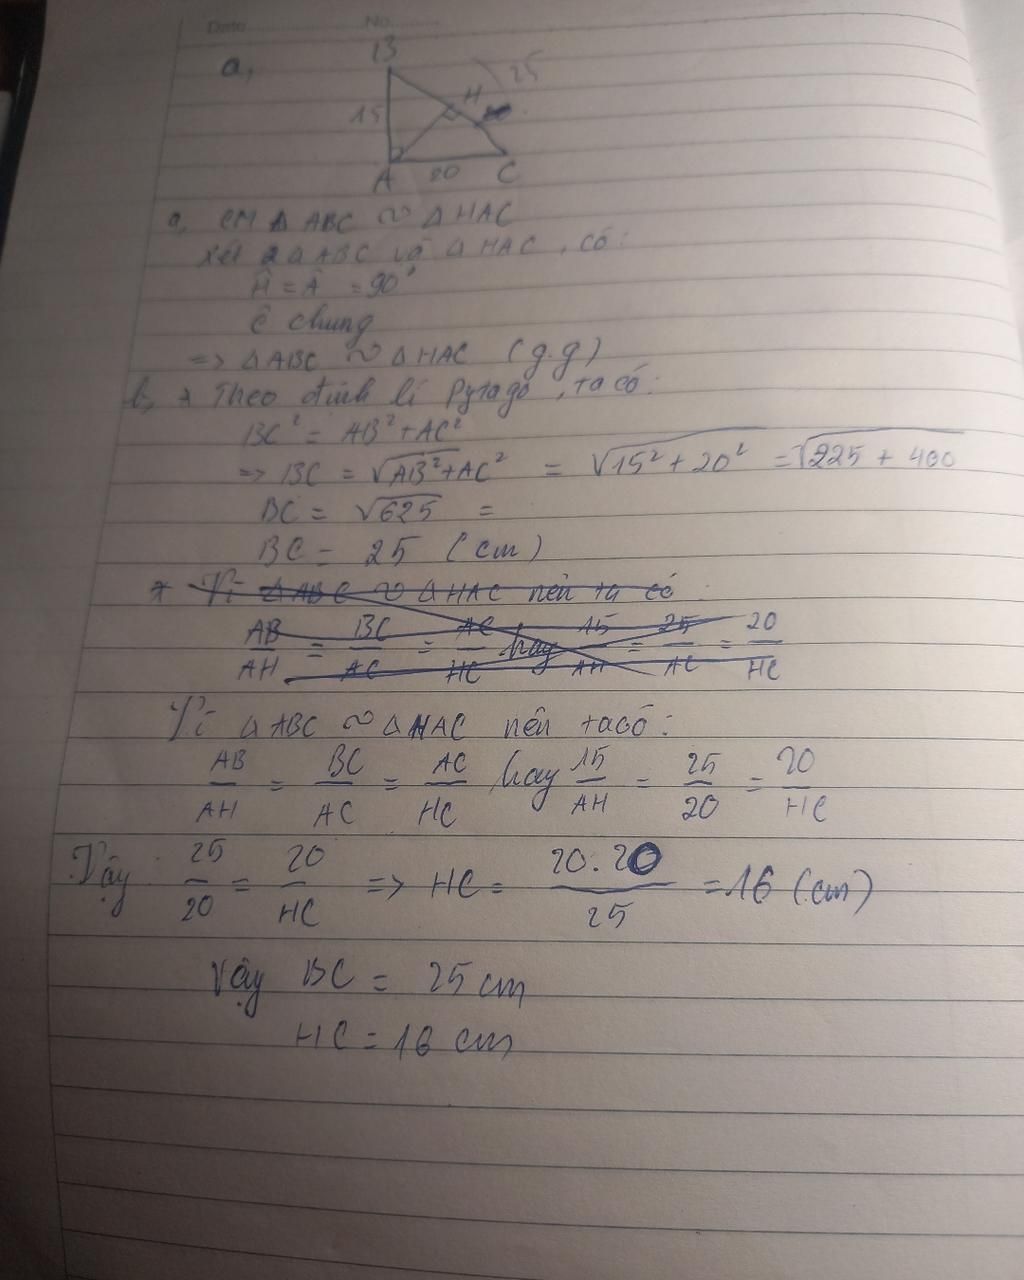 Date No
a,
B
25
15
H
A 20 C
a, CM Δ ABC ∽ Δ HAC
Xét 2 Δ ABC và Δ HAC, có:
Ĥ = Â = 90°
Ĉ chung
=> Δ ABC ∽ Δ HAC (g.g)
b, * Theo định lí Pytago, ta có:
BC² = AB² + AC²
=> BC = √AB² + AC² = √15² + 20² = √225 + 400
BC = √625 =
BC = 25 (cm)
* Vì Δ ABC ∽ Δ HAC nên ta có
AB/AH = BC/AC = AC/HC hay 15/AH = 25/AC = 20/HC
Vì Δ ABC ∽ Δ HAC nên ta có:
AB/AH = BC/AC = AC/HC hay 15/AH = 25/20 = 20/HC
Vậy 25/20 = 20/HC => HC = 20.20/25 = 16 (cm)
Vậy BC = 25 cm
HC = 16 cm